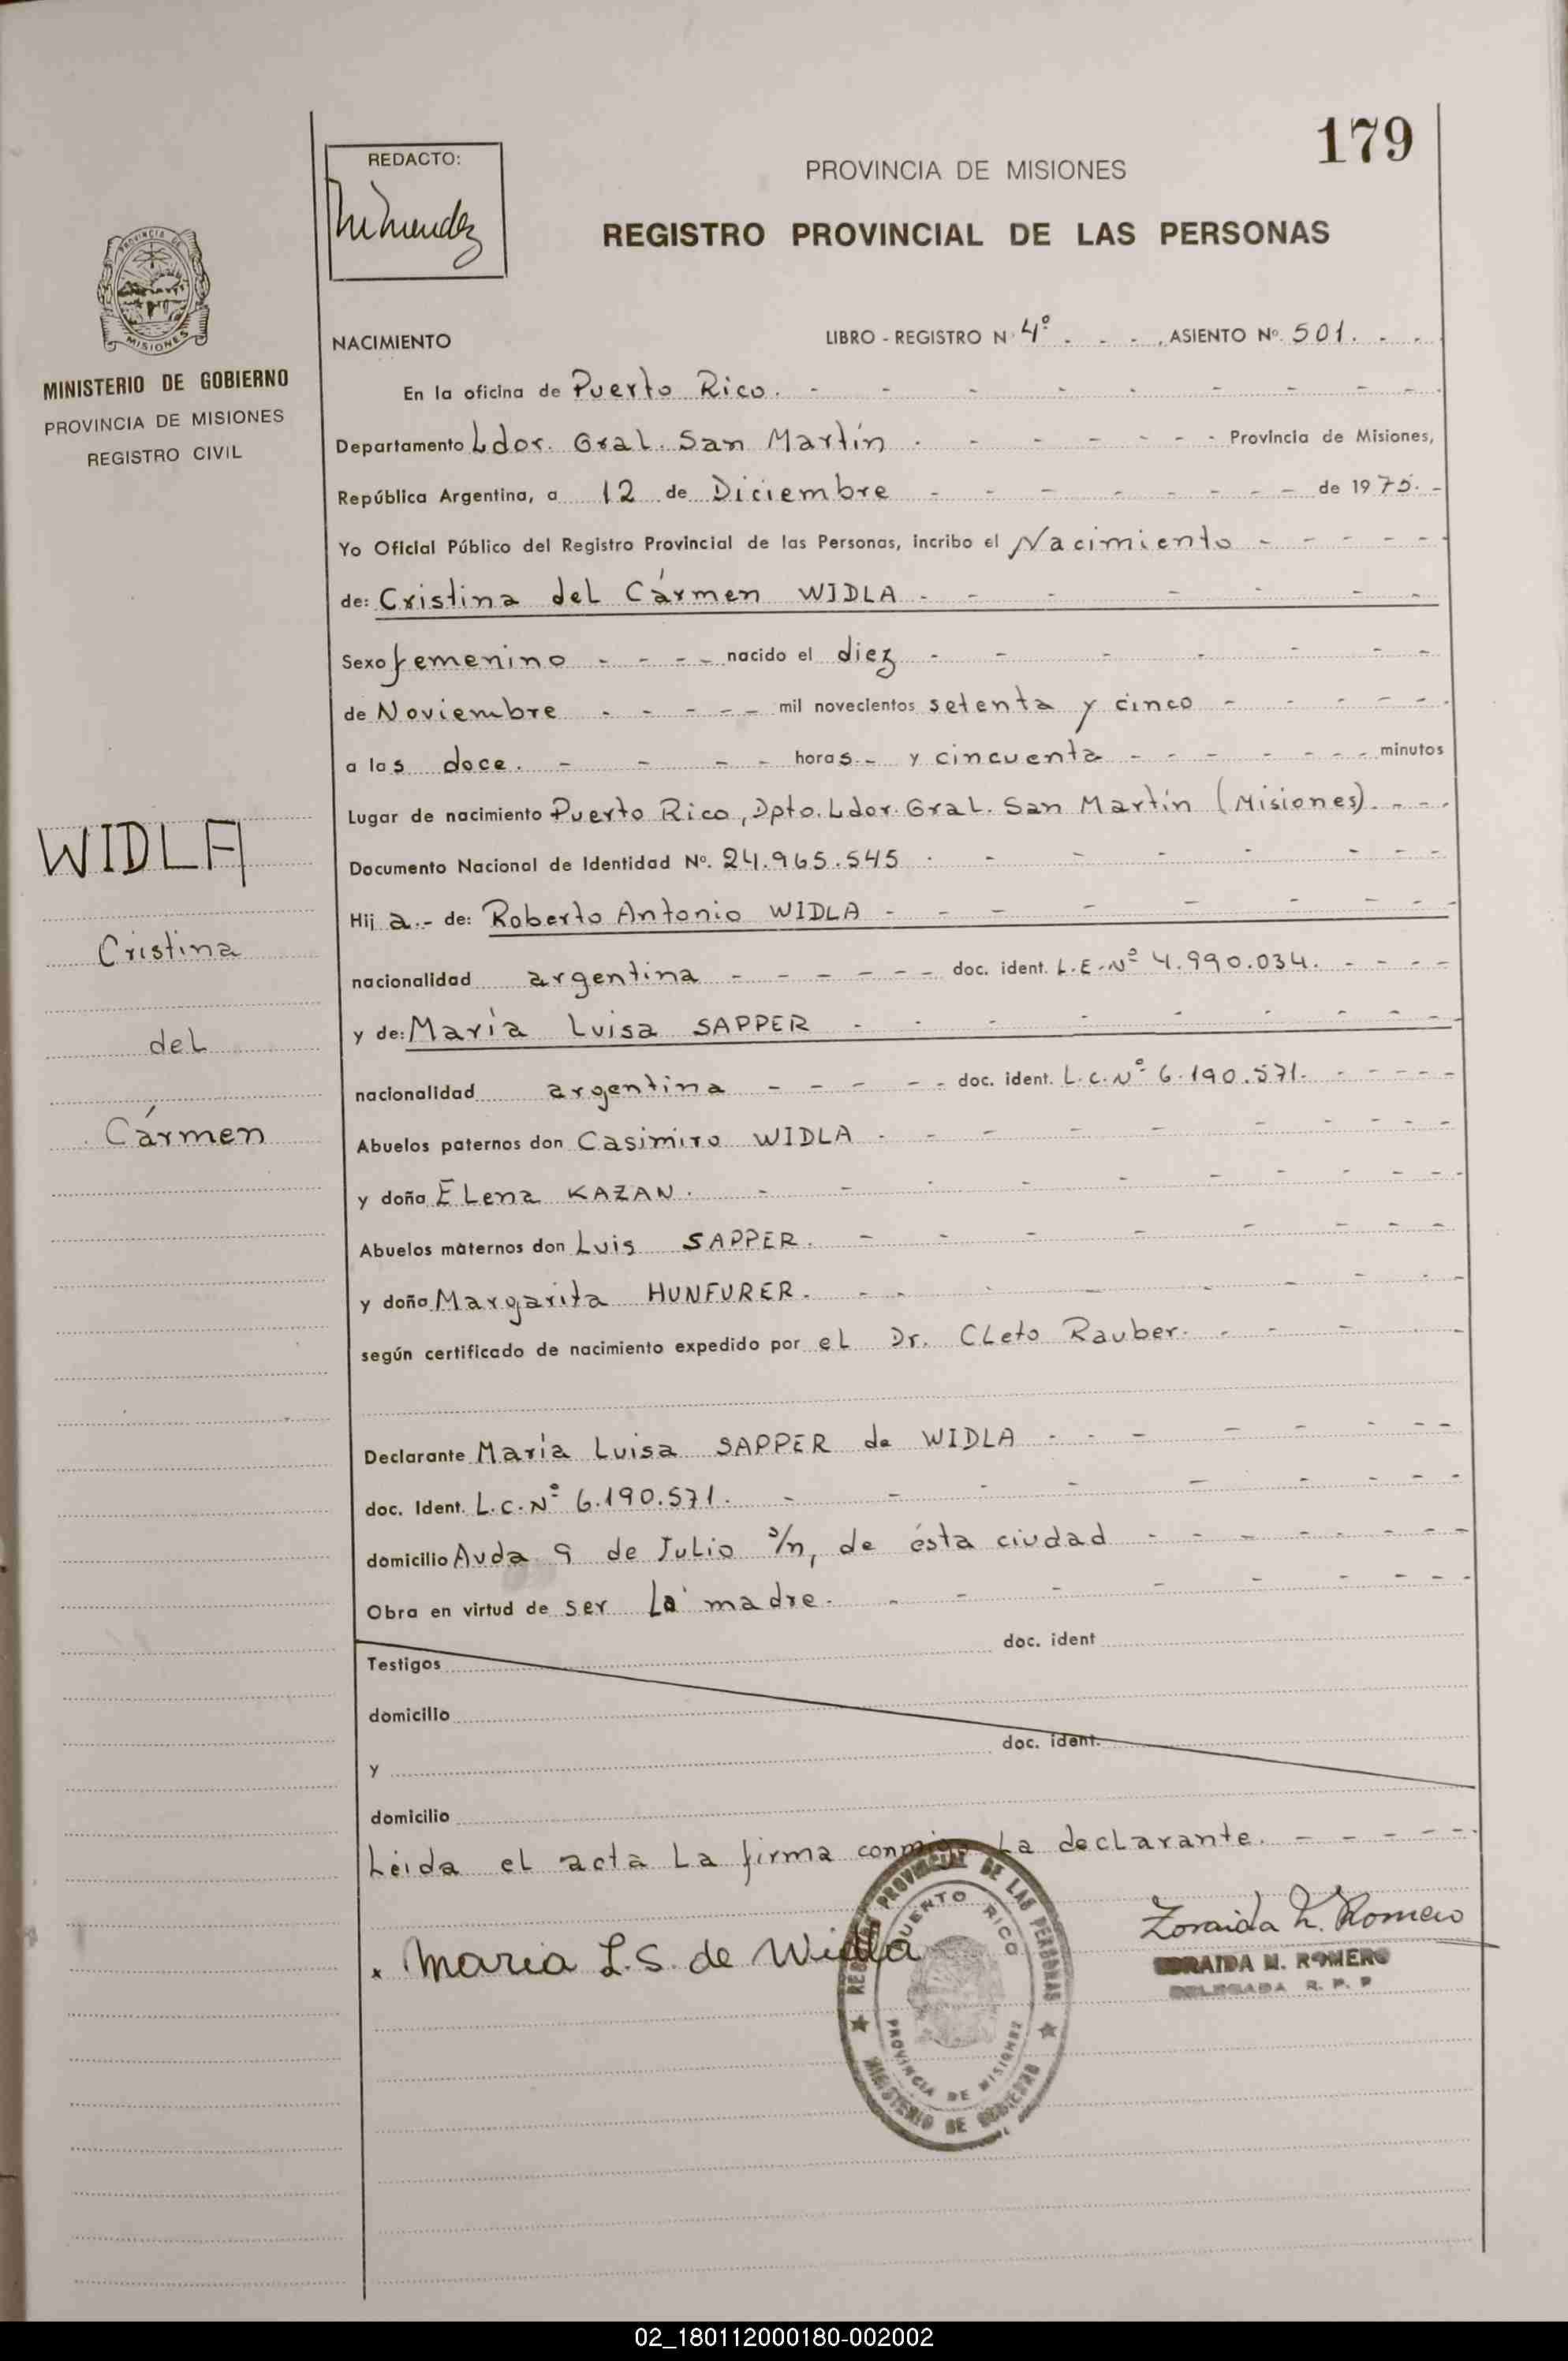 179
REDACTO:
PROVINCIA DE MISIONES
REGISTRO PROVINCIAL DE LAS PERSONAS
PROVINCIA DE
MISIONES
MINISTERIO DE GOBIERNO
PROVINCIA DE MISIONES
REGISTRO CIVIL
NACIMIENTO LIBRO - REGISTRO N 4º - - - , ASIENTO Nº. 501. - -
En la oficina de Puerto Rico. - - - - - - - - -
Departamento Ldor. Gral. San Martín - - - - - - - Provincia de Misiones,
República Argentina, a 12 de Diciembre - - - - - - - - de 1975. -
Yo Oficial Público del Registro Provincial de las Personas, incribo el Nacimiento - - - - -
de: Cristina del Cármen WIDLA - - - - - - -
Sexo femenino - - - - nacido el diez - - - - - - -
de Noviembre - - - - - mil novecientos setenta y cinco - - - - -
a las doce. - - - - horas.- y cincuenta - - - - - - - - minutos
Lugar de nacimiento Puerto Rico, Dpto. Ldor. Gral. San Martín (Misiones). - - -
Documento Nacional de Identidad Nº. 24.965.545 - - - - - - - -
Hij a.- de: Roberto Antonio WIDLA - - - - - - - - -
nacionalidad argentina - - - - - - doc. ident. L.E.Nº 4.990.034. - - - -
y de: María Luisa SAPPER - - - - - - - - - -
nacionalidad argentina - - - - - doc. ident. L.C.Nº 6.190.571. - - - - -
Abuelos paternos don Casimiro WIDLA - - - - - - - - -
y doña ELena KAZAN. - - - - - - - - -
Abuelos maternos don Luis SAPPER. - - - - - - - -
y doña Margarita HUNFURER. - - - - - - -
según certificado de nacimiento expedido por eL Dr. CLeto Rauber. - - - - -
Declarante María Luisa SAPPER de WIDLA - - - - - - - -
doc. Ident. L.C.Nº 6.190.571. - - - - - - - - -
domicilio Avda 9 de JuLio s/n, de ésta ciudad - - - - - - - -
Obra en virtud de ser La madre. - - - - - - - - -
Testigos doc. ident
domicilio
y doc. ident.
domicilio
Leida el acta La firma conmigo La declarante. - - - - -
Maria L.S. de Widla
Zoraida M. Romero
ZORAIDA M. ROMERO
DELEGADA R. P. P
REGISTRO PROVINCIAL DE LAS PERSONAS
PUERTO RICO
PROVINCIA DE MISIONES
MINISTERIO DE GOBIERNO
WIDLA
Cristina
del
Cármen
02_180112000180-002002